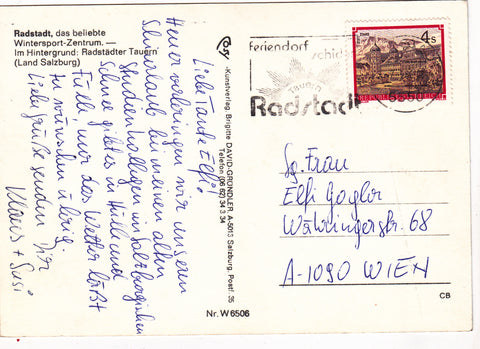 Radstadt, das beliebte
Wintersport-Zentrum. —
Im Hintergrund: Radstädter Tauern
(Land Salzburg)
Liebe Tante Elfi!
Heuer verbringen wir unseren
Skiurlaub bei meinen alten
Studienkollegen im Salzburgischen
Schnee gibt es in Hülle und
Fülle, nur das Wetter läßt
zu wünschen übrig.
Liebe Grüße senden Dir
Klaus + Susi
Cosy
Kunstverlag Brigitte DAVID-GRÜNDLER A-5013 Salzburg, Postf. 35
Telefon (06 62) 34 3 34
Nr. W 6506
Feriendorf
Tauern
Radstadt
4 S
Sg. Frau
Elfi Gogler
Währingerstr. 68
A-1090 WIEN
CB